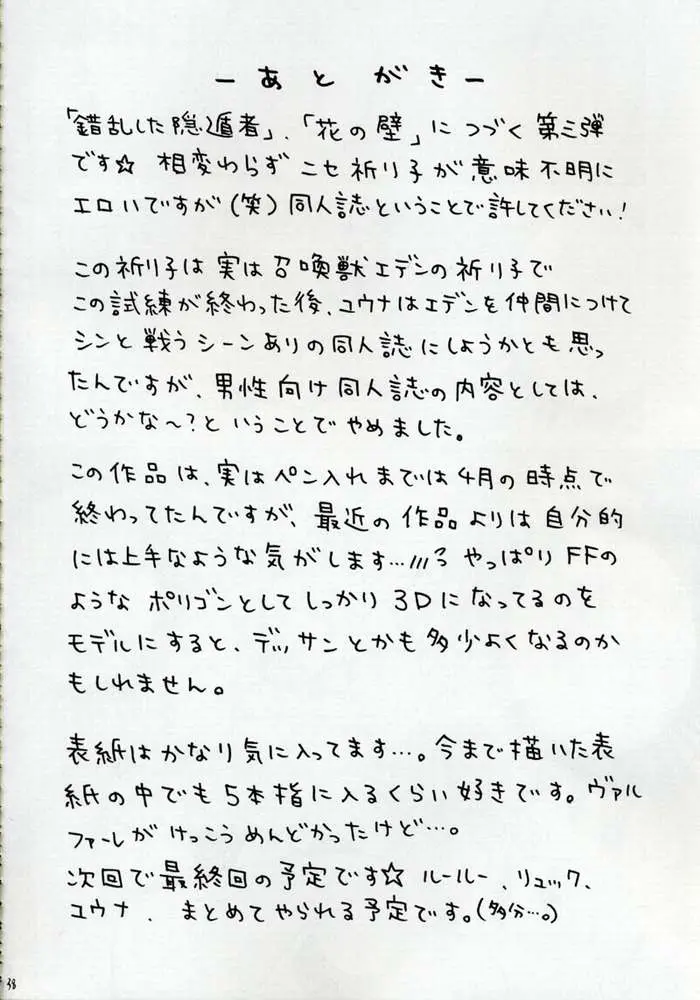 ーあとがきー
「錯乱した隠遁者」、「花の壁」につづく第三弾
です☆ 相変わらずニセ祈り子が意味不明に
エロいですが(笑)同人誌ということで許してください!
この祈り子は実は召喚獣エデンの祈り子で
この試練が終わった後、ユウナはエデンを仲間につけて
シンと戦うシーンありの同人誌にしようかとも思っ
たんですが、男性向け同人誌の内容としては、
どうかな〜?ということでやめました。
この作品は、実はペン入れまでは4月の時点で
終わってたんですが、最近の作品よりは自分的
には上手なような気がします…やっぱりFFの
ようなポリゴンとしてしっかり3Dになってるのを
モデルにすると、デッサンとかも多少よくなるのか
もしれません。
表紙はかなり気に入ってます…。今まで描いた表
紙の中でも5本指に入るくらい好きです。ヴァル
ファーレがけっこうめんどかったけど…。
次回で最終回の予定です☆ ルールー、リュック、
ユウナ、まとめてやられる予定です。(多分…。)
38